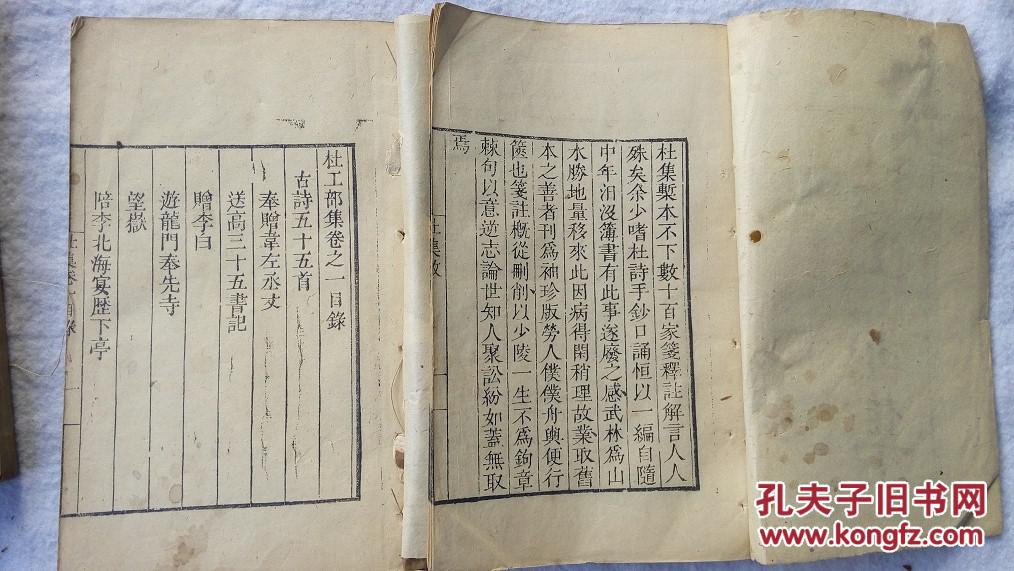 杜集槧本不下數十百家箋釋註解言人人
殊矣余少嗜杜詩手鈔口誦恒以一編自隨
中年汨沒簿書有此事遂廢之感武林爲山
水勝地量移來此因病得閑稍理故業取舊
本之善者刊爲袖珍版勞人僕僕舟輿便行
篋也箋註概從刪削以少陵一生不爲鉤章
棘句以意逆志論世知人聚訟紛如蓋無取
焉
杜集敘
杜工部集卷之一目錄
古詩五十五首
奉贈韋左丞丈
送高三十五書記
贈李白
遊龍門奉先寺
望嶽
陪李北海宴歷下亭
杜集卷一目錄
孔夫子旧书网
www.kongfz.com